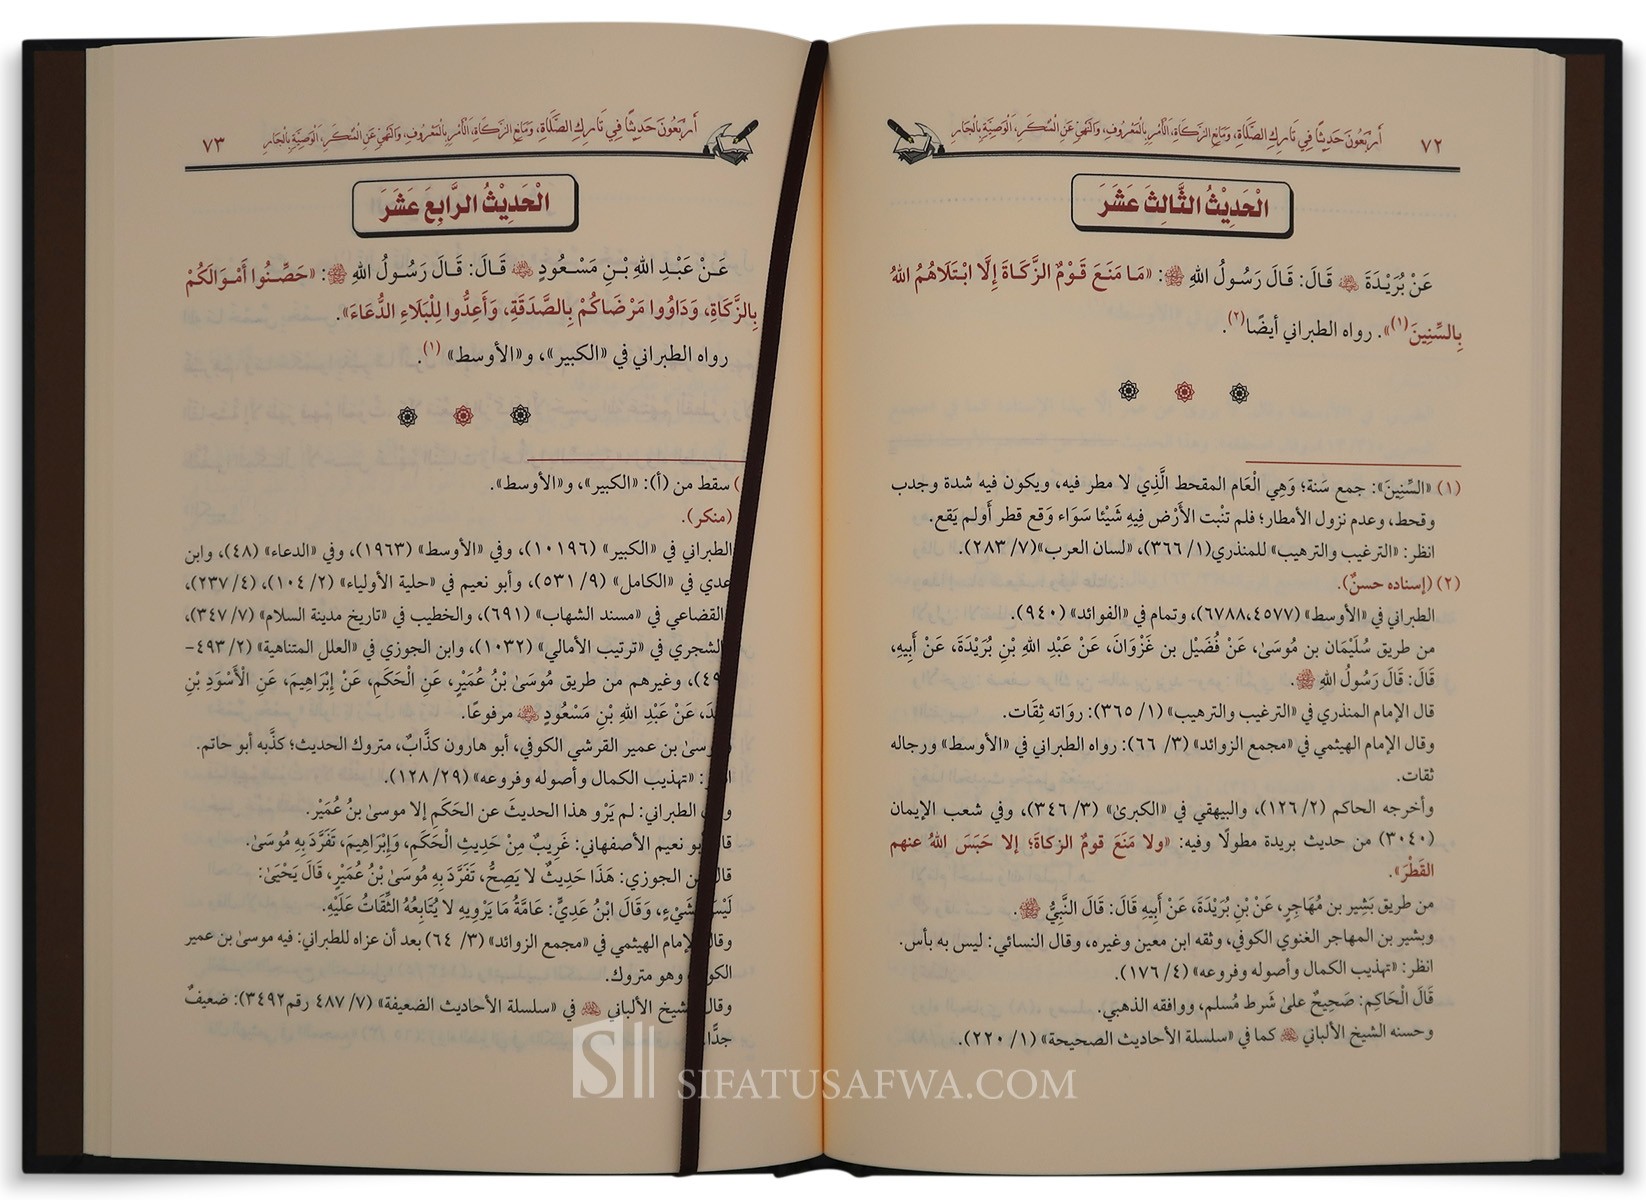 ٧٢ أَرْبَعُونَ حَدِيثًا فِي تَارِكِ الصَّلَاةِ، وَمَانِعِ الزَّكَاةِ، الْأَمْرِ بِالْمَعْرُوفِ، وَالنَّهْيِ عَنِ الْمُنْكَرِ، الْوَصِيَّةِ بِالْجَارِ
الْحَدِيْثُ الثَّالِثَ عَشَرَ
عَنْ بُرَيْدَةَ ﵁ قَالَ: قَالَ رَسُولُ اللهِ ﷺ: «مَا مَنَعَ قَوْمٌ الزَّكَاةَ إِلَّا ابْتَلَاهُمُ اللهُ
بِالسِّنِينَ(١)». رواه الطبراني أيضًا(٢).
(١) «السِّنِينَ»: جمع سَنة؛ وَهِي الْعَام المقحط الَّذِي لا مطر فيه، ويكون فيه شدة وجدب
وقحط، وعدم نزول الأمطار؛ فلم تنْبت الأَرْض فِيهِ شَيْئا سَوَاء وَقع قطر أَولم يَقع.
انظر: «الترغيب والترهيب» للمنذري(١/ ٣٦٦)، «لسان العرب»(٧/ ٢٨٣).
(٢) (إسناده حسنٌ).
الطبراني في «الأوسط» (٦٧٨٨،٤٥٧٧)، وتمام في «الفوائد» (٩٤٠).
من طريق سُلَيْمَان بن مُوسَىٰ، عَنْ فُضَيْل بن غَزْوَانَ، عَنْ عَبْدِ اللهِ بْنِ بُرَيْدَةَ، عَنْ أَبِيهِ،
قَالَ: قَالَ رَسُولُ اللهِ ﷺ.
قال الإمام المنذري في «الترغيب والترهيب» (١/ ٣٦٥): روَاته ثِقَات.
وقال الإمام الهيثمي في «مجمع الزوائد» (٣/ ٦٦): رواه الطبراني في «الأوسط» ورجاله
ثقات.
وأخرجه الحاكم (٢/ ١٢٦)، والبيهقي في «الكبرىٰ» (٣/ ٣٤٦)، وفي شعب الإيمان
(٣٠٤٠) من حديث بريدة مطولًا وفيه: «ولا مَنَعَ قومٌ الزكاةَ؛ إلا حَبَسَ اللهُ عنهم
القَطْرَ».
من طريق بَشِير بن مُهَاجِرٍ، عَنْ بْنِ بُرَيْدَةَ، عَنْ أَبِيهِ قَالَ: قَالَ النَّبِيُّ ﷺ.
وبشير بن المهاجر الغنوي الكوفي، وثقه ابن معين وغيره، وقال النسائي: ليس به بأس.
انظر: «تهذيب الكمال وأصوله وفروعه» (٤/ ١٧٦).
قَالَ الْحَاكِم: صَحِيحٌ علىٰ شَرط مُسلم، ووافقه الذهبي.
وحسنه الشيخ الألباني ﵀ كما في «سلسلة الأحاديث الصحيحة» (١/ ٢٢٠).
أَرْبَعُونَ حَدِيثًا فِي تَارِكِ الصَّلَاةِ، وَمَانِعِ الزَّكَاةِ، الْأَمْرِ بِالْمَعْرُوفِ، وَالنَّهْيِ عَنِ الْمُنْكَرِ، الْوَصِيَّةِ بِالْجَارِ ٧٣
الْحَدِيْثُ الرَّابِعَ عَشَرَ
عَنْ عَبْدِ اللهِ بْنِ مَسْعُودٍ ﵁ قَالَ: قَالَ رَسُولُ اللهِ ﷺ: «حَصِّنُوا أَمْوَالَكُمْ
بِالزَّكَاةِ، وَدَاوُوا مَرْضَاكُمْ بِالصَّدَقَةِ، وَأَعِدُّوا لِلْبَلَاءِ الدُّعَاءَ».
رواه الطبراني في «الكبير»، و«الأوسط» (١).
سقط من (أ): «الكبير»، و«الأوسط».
(منكر).
الطبراني في «الكبير» (١٠١٩٦)، وفي «الأوسط» (١٩٦٣)، وفي «الدعاء» (٤٨)، وابن
عدي في «الكامل» (٩/ ٥٣١)، وأبو نعيم في «حلية الأولياء» (٢/ ١٠٤)، (٤/ ٢٣٧)،
القضاعي في «مسند الشهاب» (٦٩١)، والخطيب في «تاريخ مدينة السلام» (٧/ ٣٤٧)،
الشجري في «ترتيب الأمالي» (١٠٣٢)، وابن الجوزي في «العلل المتناهية» (٢/ ٤٩٣-
وغيرهم من طريق مُوسَىٰ بْنُ عُمَيْرٍ، عَنِ الْحَكَمِ، عَنْ إِبْرَاهِيمَ، عَنِ الْأَسْوَدِ بْنِ
عَنْ عَبْدِ اللهِ بْنِ مَسْعُودٍ ﵁ مرفوعًا.
بن عمير القرشي الكوفي، أبو هارون كذَّابٌ، متروك الحديث؛ كذَّبه أبو حاتم.
«تهذيب الكمال وأصوله وفروعه» (٢٩/ ١٢٨).
الطبراني: لم يَرْوِ هذا الحديثَ عن الحَكَمِ إلا موسىٰ بنُ عُمَيْر.
نعيم الأصفهاني: غَرِيبٌ مِنْ حَدِيثِ الْحَكَمِ، وَإِبْرَاهِيمَ، تَفَرَّدَ بِهِ مُوسَىٰ.
الجوزي: هَذَا حَدِيثٌ لا يَصِحُّ، تَفَرَّدَ بِهِ مُوسَىٰ بْنُ عُمَيْرٍ، قَالَ يَحْيَىٰ:
وَقَالَ ابْنُ عَدِيٍّ: عَامَّةُ مَا يَرْوِيهِ لا يُتَابِعُهُ الثِّقَاتُ عَلَيْهِ.
وقال الإمام الهيثمي في «مجمع الزوائد» (٣/ ٦٤) بعد أن عزاه للطبراني: فيه موسىٰ بن عمير
وهو متروك.
وقال الشيخ الألباني ﵀ في «سلسلة الأحاديث الضعيفة» (٧/ ٤٨٧ رقم ٣٤٩٢): ضعيفٌ
جدًّا.
SIFATUSAFWA.COM